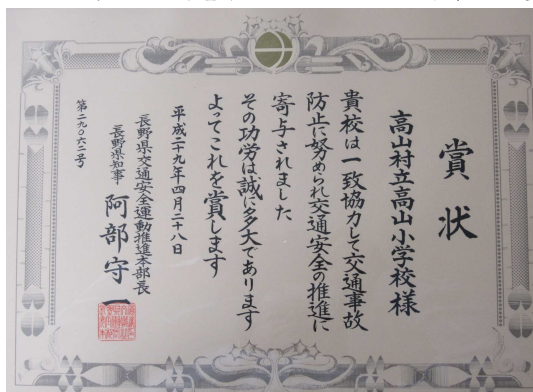 賞状
高山村立高山小学校様
貴校は一致協力して交通事故
防止に努められ交通安全の推進に
寄与されました
その功労は誠に多大であります
よってこれを賞します
平成二十九年四月二十八日
長野県交通安全運動推進本部長
長野県知事 阿部守一
第二九〇六二号